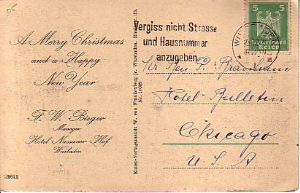 A Merry Christmas
and a Happy
New Year
F. W. Birger
Manager
Hotel Nassauer-Hof
Wiesbaden
Vergiss nicht Strasse
und Hausnummer
anzugeben
5 5
Deutsches
Reich
Hotel Bulletin
Chicago
U.S.A